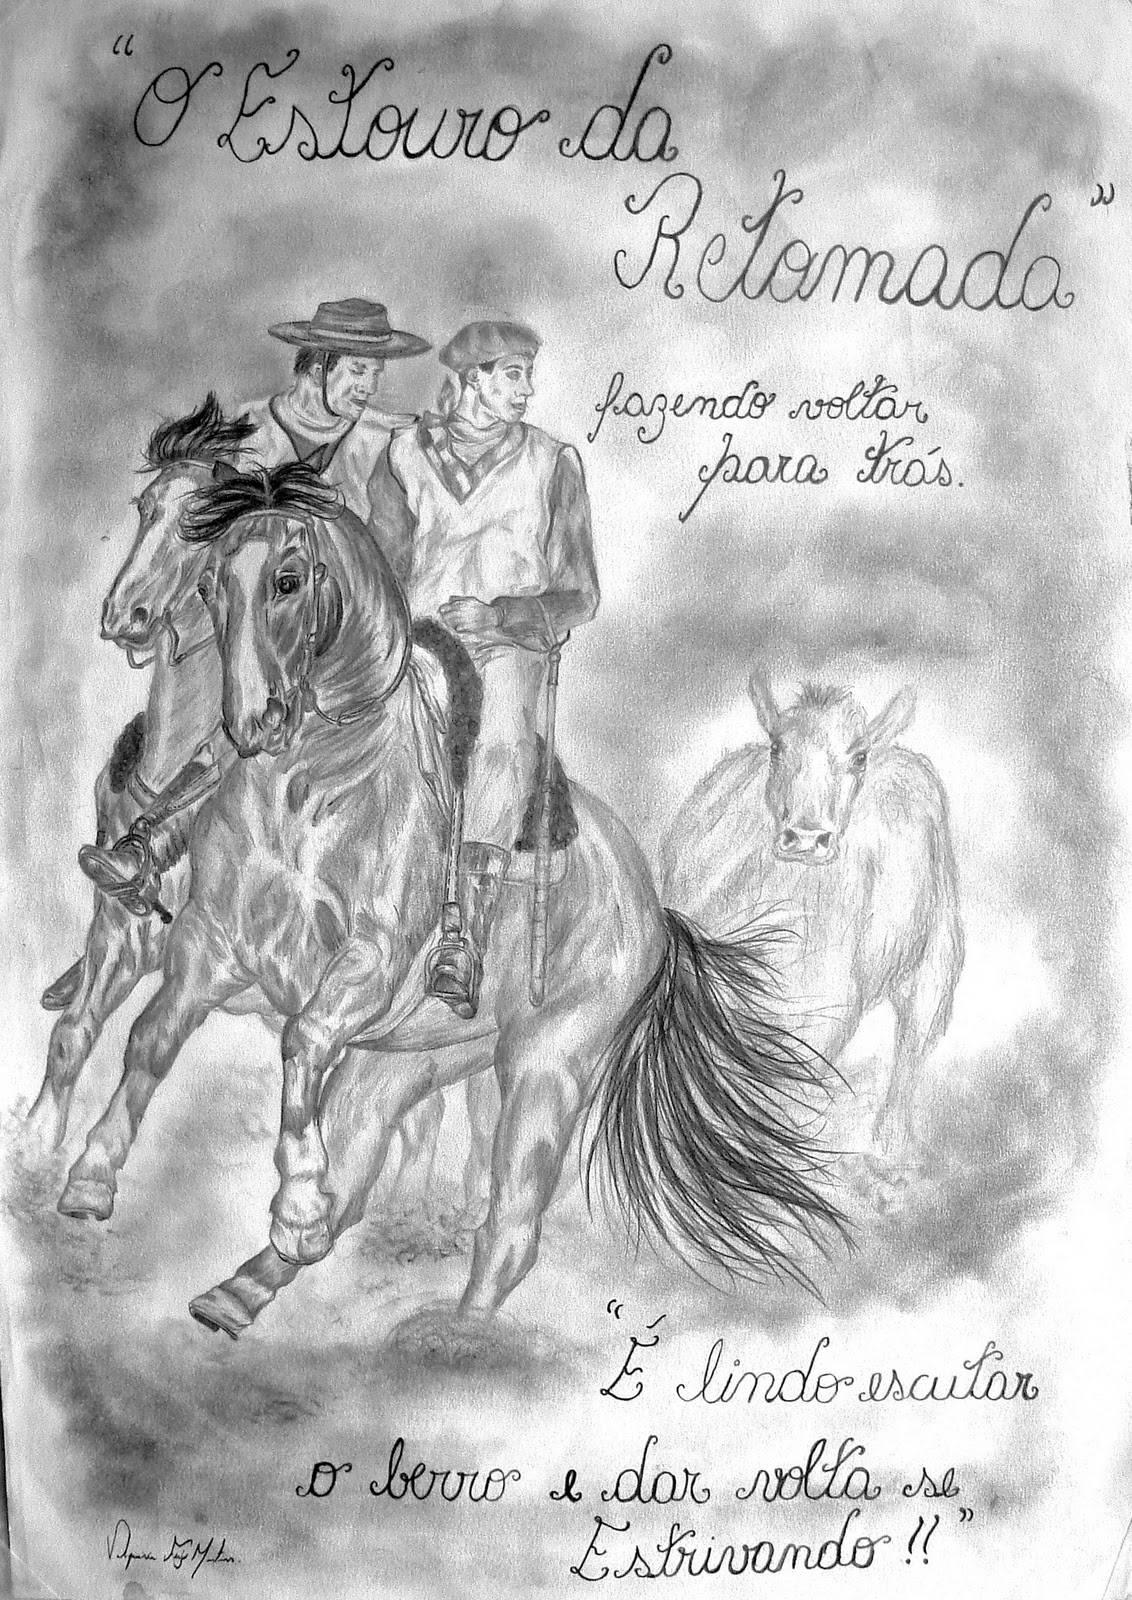 "O Estouro da
Retomada"
fazendo voltar
para trás.
"É lindo escutar
o berro e dar volta se
Estrivando!!"